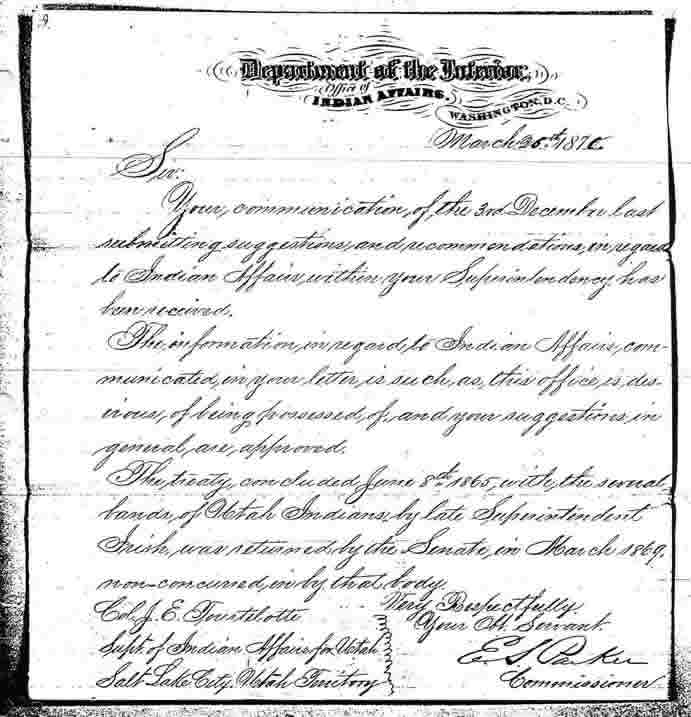 9.
Department of the Interior,
Office of
INDIAN AFFAIRS.
WASHINGTON, D.C.
March 1870.
Sir:
Your communication, of the 3rd December last
submitting suggestions, and recommendations, in regard
to Indian Affairs, within your Superintendency, has
been received.
The information, in regard, to Indian Affairs, com-
municated, in your letter, is such, as, this office, is, des-
irous, of being possessed, of, and your suggestions, in
general, are, approved.
The treaty, concluded June 8th 1865, with, the several
bands, of Utah Indians, by late Superintendent
Irish, was returned, by the Senate, in March 1869,
non-concurred, in by that body.
Very Respectfully.
Your Obt. Servant.
E. S. Parker
Commissioner.
Col. J. E. Tourtelotte
Supt. of Indian Affairs for Utah
Salt Lake City, Utah Territory